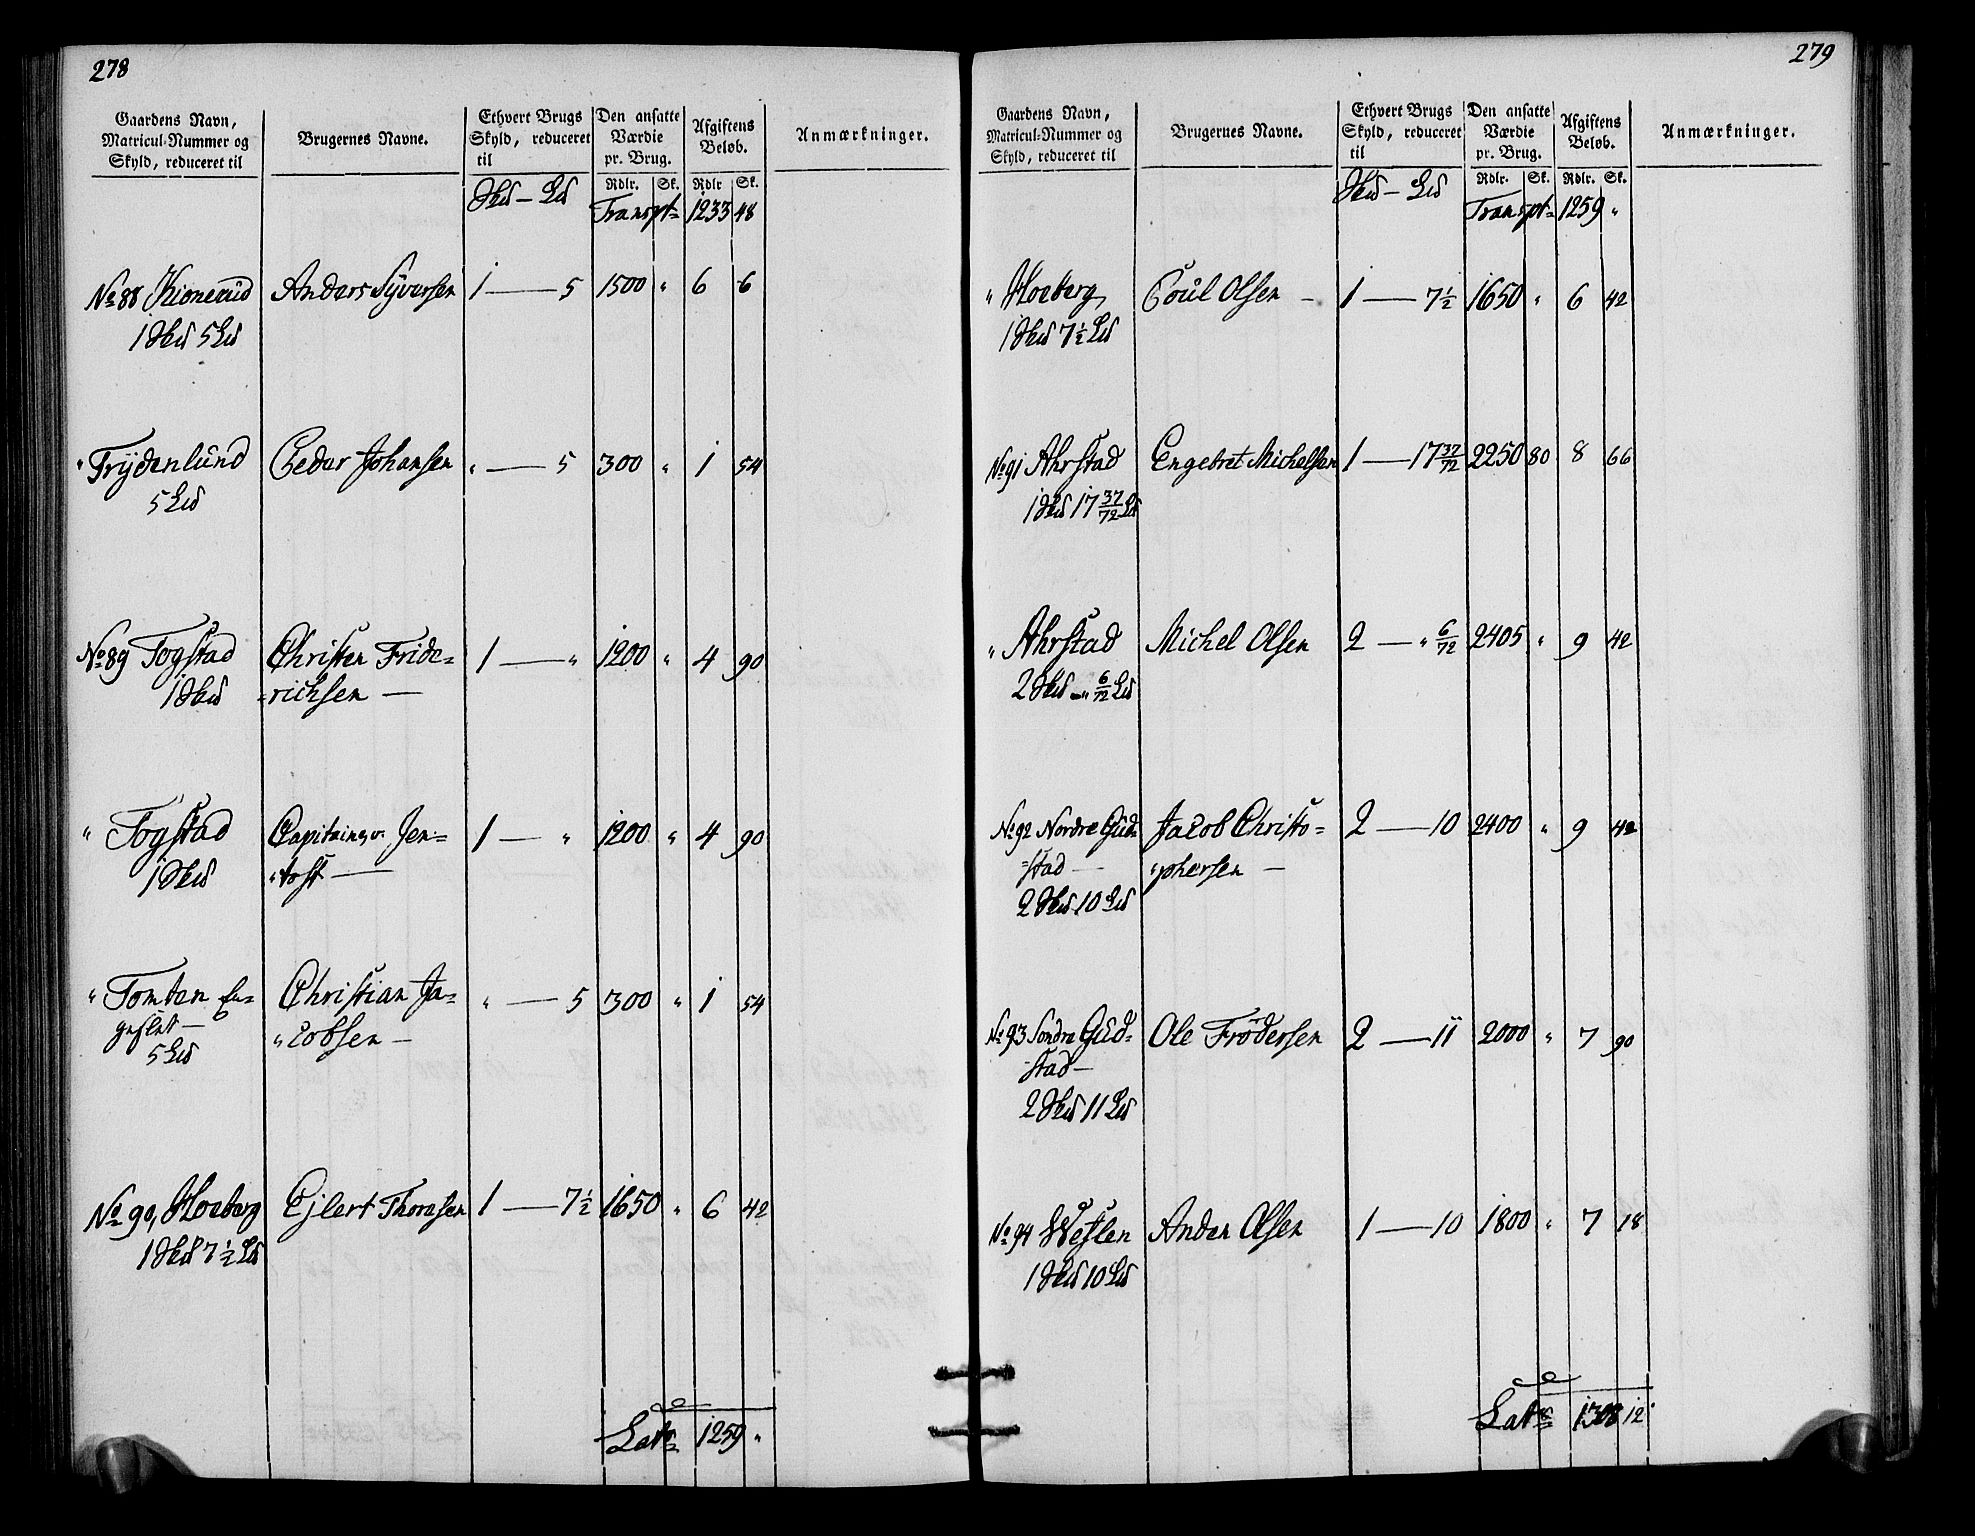 278
Gaardens Navn, Matricul-Nummer og Skyld, reduceret til | Brugernes Navne. | Ethvert Brugs Skyld, reduceret til | Den ansatte Værdie pr. Brug. | Afgiftens Beløb. | Anmærkninger.
Skd — Ld | Rdlr. | Sk. | Rdlr | Sk.
Transpt= 1233 48
No 88 Kionerud Anders Syversen 1 — 5 1500 " 6 6
1 Skd 5 Ld
" Frydenlund Peder Johansen " — 5 300 " 1 54
5 Ld
No 89 Fogstad Christen Fride= 1 — " 1200 " 4 90
1 Skd =richsen —
" Fogstad Capitain v. Jen= 1 — " 1200 " 4 90
1 Skd "toft —
" Tomten En= Christian Ja= " — 5 300 " 1 54
geslet — "cobsen —
5 Ld
No 90, Hoeberg Ejlert Thoresen 1 — 7½ 1650 " 6 42
1 Skd 7½ Ld
Lats 1259 "
279
Gaardens Navn, Matricul-Nummer og Skyld, reduceret til | Brugernes Navne. | Ethvert Brugs Skyld, reduceret til | Den ansatte Værdie pr. Brug. | Afgiftens Beløb. | Anmærkninger.
Skd — Ld | Rdlr. | Sk. | Rdlr. | Sk.
Transpt= 1259 "
" Hoeberg Poul Olsen — 1 — 7½ 1650 " 6 42
1 Skd 7½ Ld
No 91 Ahrstad Engebret Michelsen 1 — 17 37/72 2250 80 8 66
1 Skd 17 37/72 Ld
" Ahrstad Michel Olsen 2 — " 6/72 2405 " 9 42
2 Skd — " 6/72 Ld
No 92 Nordre Gud= Jacob Christo= 2 — 10 2400 " 9 42
=stad — "phersen —
2 Skd 10 Ld
No 93 Søndre Gud= Ole Frødersen 2 — 11 2000 " 7 90
=stad —
2 Skd 11 Ld
No 94 Westen Anden Olsen 1 — 10 1800 " 7 18
1 Skd 10 Ld
Lats 1308 12